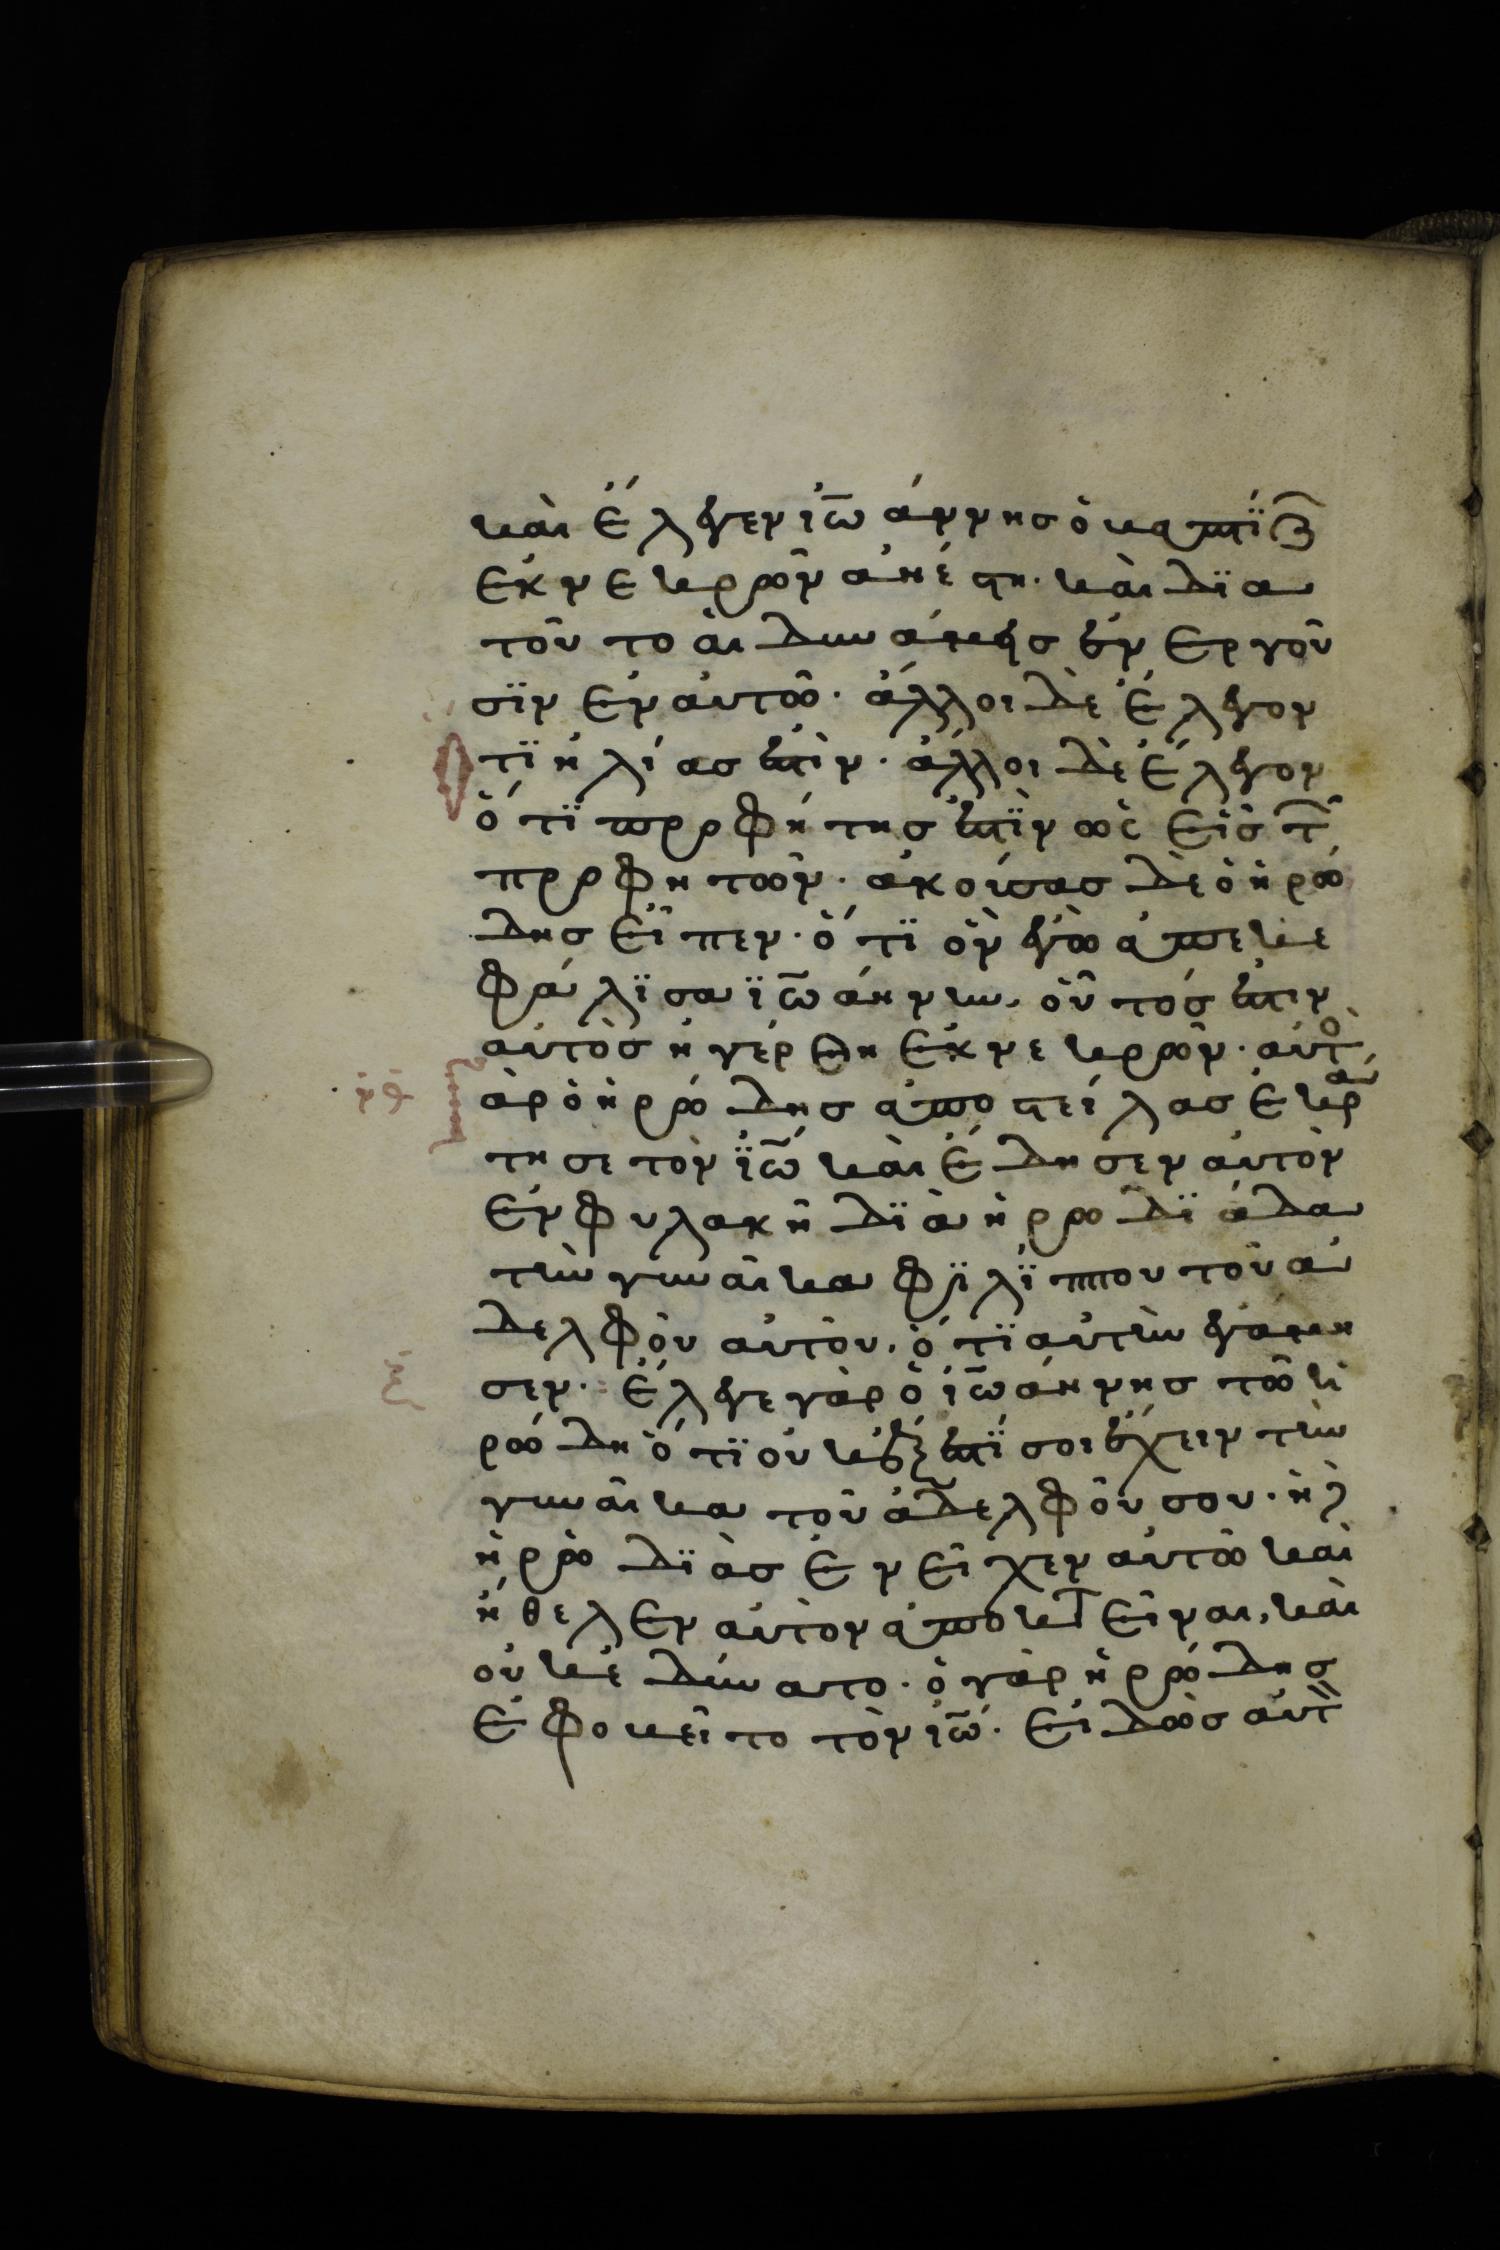 καὶ ἔλεγεν ἰω̅άννησ ὁ βαπτίζ
ἐκ νεκρῶν ἀνέστη· καὶ δϊα
τοῦτο αἱ δυνάμεισ ἐνεργοῦ
σϊν ἐν αὐτῶ· ἄλλοι δὲ ἔλεγον
ὅτϊ ἠλίασ ἐστὶν· ἄλλοι δὲ ἔλεγον
ὅτϊ προφήτησ ἐστϊν ὡς εἷσ τ
προφητῶν· ἀκούσασ δὲ ὁ ἡρώ
δησ εἶπεν· ὅτϊ ὃν ἐγὼ ἀπεκε
φάλϊσα ϊω̅άννην, οὗτόσ ἐστιν
αὐτὸσ ἠγέρθη ἐκ νεκρῶν· αὐτο
ὰρ ὁ ἡρώδησ ἀποστείλασ ἐκρά
τησε τὸν ϊω̅ καὶ ἔδησεν αὐτὸν
ἐν φυλακῆ δϊὰ ἡρωδϊάδα
τὴν γυναῖκα φϊλΐππου τοῦ ἀ
δελφοῦ αὐτοῦ, ὅτϊ αὐτὴν ἐγάμη
σεν· ἔλεγε γὰρ ὁ ἰω̅άννησ τῶ ἡ
ρώδη ὅτϊ οὐκ ἔξεστϊ σοι ἔχειν τὴν
γυναῖκα τοῦ ἀδελφοῦ σου· ἡ δ
ἡρωδϊὰσ ἐνεῖχεν αὐτῶ καὶ
ἤθελεν αὐτὸν ἀποκτεῖναι, καὶ
οὐκ ἐδύνατο· ὁ γὰρ ἡρώδησ
ἐφοβεῖτο τὸν ἰω̅· εἰδὼσ αὐτ